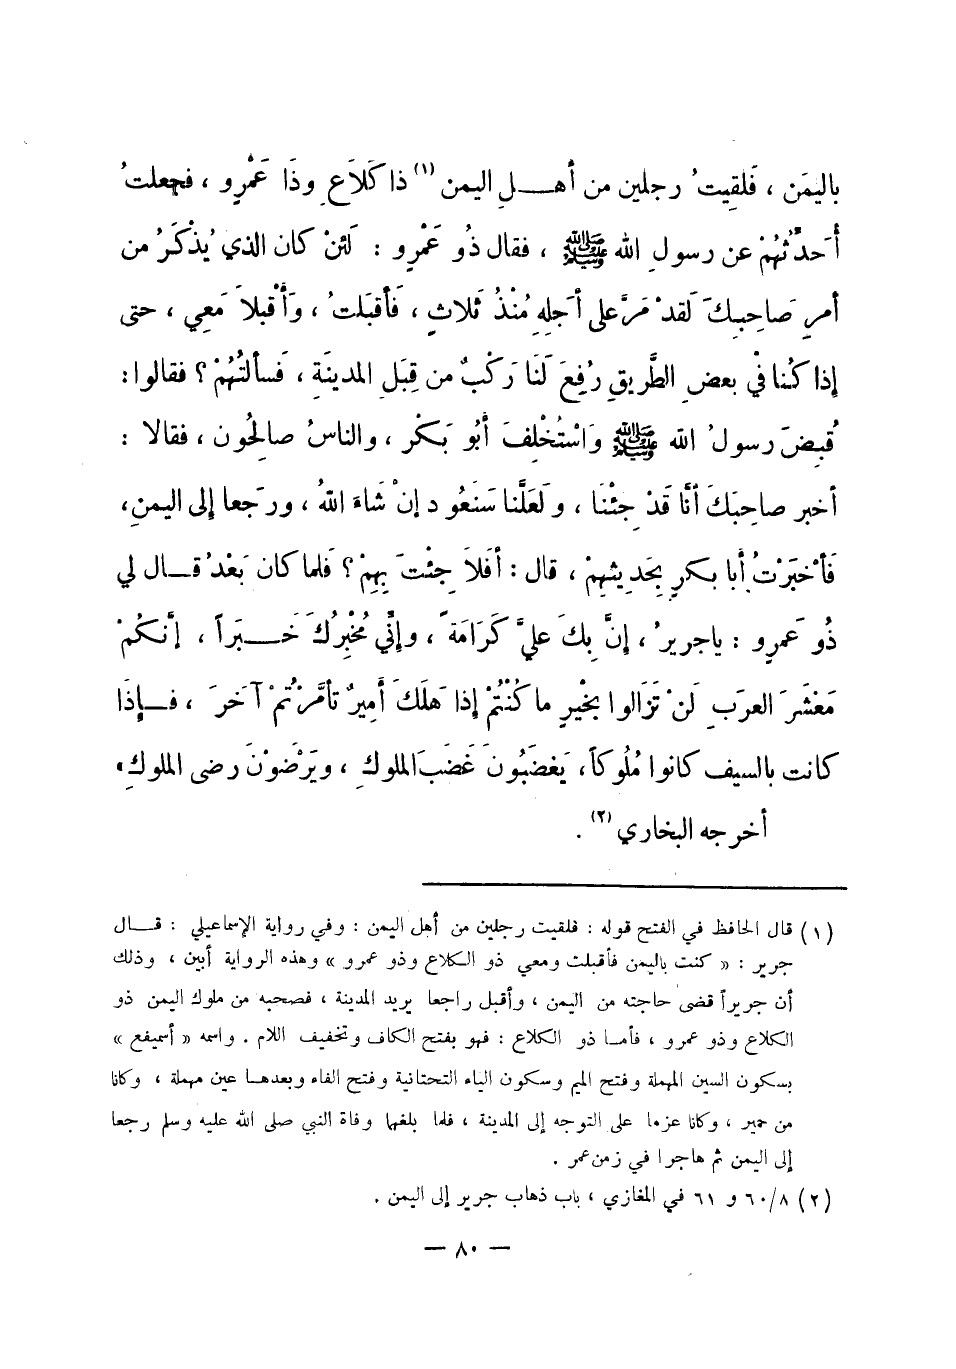 باليمَن ، فَلَقِيتُ رجلين من أهـــلِ اليمن (١) ذا كَلاَعٍ وذَا عَمْرٍو ، فجعلتُ
أُحَدِّثُهُمْ عن رسولِ الله ﷺ ، فقال ذُو عَمْرٍو : لَئنْ كان الذي يُذْكَرُ من
أمرِ صَاحِبِكَ لَقدْ مَرَّ على أجَلِهِ مُنْذُ ثَلاثٍ ، فَأقبَلتُ ، وَأقْبلاَ مَعِي ، حتى
إذا كُنا في بعضِ الطَّريقِ رُفِعَ لَنَا رَكْبٌ من قِبَلِ المدينَةِ ، فَسألتُهُمْ ؟ فقالوا :
قُبِضَ رسولُ الله ﷺ وَاسْتُخْلِفَ أبُو بَكْر ، والناسُ صالِحُون ، فقالا :
أخبر صاحِبَكَ أنَّا قَدْ جِئْنَا ، ولَعَلَّنا سَنَعُود إنْ شَاءَ اللهُ ، ورَجعا إلى اليمنِ ،
فَأخْبَرْتُ أبا بكرٍ بِحَديثِهِمْ ، قال : أفَلاَ جِئْتَ بِهِمْ ؟ فَلما كان بَعْدُ قـــال لي
ذُو عَمرٍو : ياجريرُ ، إنَّ بِكَ عَليَّ كَرَامَةً ، وإنِّي مُخْبِرُكَ خَـــبَراً ، إنَّكمْ
مَعْشَرَ العرَبِ لَنْ تَزَالوا بخْيرٍ ما كُنْتُمْ إذا هَلَكَ أميرٌ تأمَّرْتُمْ آخَرَ ، فـــإذَا
كانت بالسيف كانوا مُلُوكاً ، يَغضَبُونَ غَضَبَ الملوكِ ، ويَرْضَوْنَ رضى الملوكِ »
أخرجه البخاري (٢) .
(١) قال الحافظ في الفتح قوله : فلقيت رجلين من أهل اليمن : وفي رواية الإسماعيلي : قـــال
جرير : « كنت باليمن فأقبلت ومعي ذو الكلاع وذو عمرو » وهذه الرواية أبين ، وذلك
أن جريراً قضى حاجته من اليمن ، وأقبل راجعا يريد المدينة ، فصحبه من ملوك اليمن ذو
الكلاع وذو عمرو ، فأمـا ذو الكلاع : فهو بفتح الكاف وتخفيف اللام . واسمه « أسميفع »
بسكون السين المهملة وفتح الميم وسكون الياء التحتانية وفتح الفاء وبعدهـا عين مهملة ، وكانا
من حمير ، وكانا عزما على التوجه إلى المدينة ، فلما بلغهما وفاة النبي صلى الله عليه وسلم رجعا
إلى اليمن ثم هاجرا في زمن عمر .
(٢) ٨/ ٦٠ و ٦١ في المغازي ، باب ذهاب جرير إلى اليمن .
— ٨٠ —